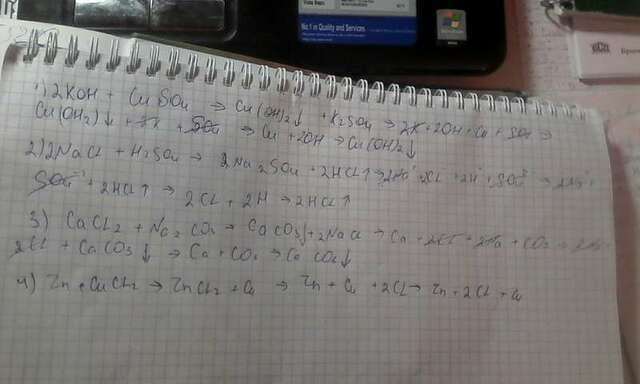 No.1 in Quality and Services
1) 2KOH + CuSO4 → Cu(OH)2↓ + K2SO4 → 2K + 2OH + Cu + SO4 →
Cu(OH)2↓ + 2K + SO4 → Cu + 2OH → Cu(OH)2↓
2) 2NaCl + H2SO4 → 2Na2SO4 + 2HCl↑ → 2Na + 2Cl + 2H + SO4 → 2Na +
SO4 + 2HCl↑ → 2Cl + 2H → 2HCl↑
3) CaCl2 + Na2CO3 → CaCO3↓ + 2NaCl → Ca + 2Cl + 2Na + CO3 → 2Na +
2Cl + CaCO3↓ → Ca + CO3 → CaCO3↓
4) Zn + CuCl2 → ZnCl2 + Cu → Zn + Cu + 2Cl → Zn + 2Cl + Cu